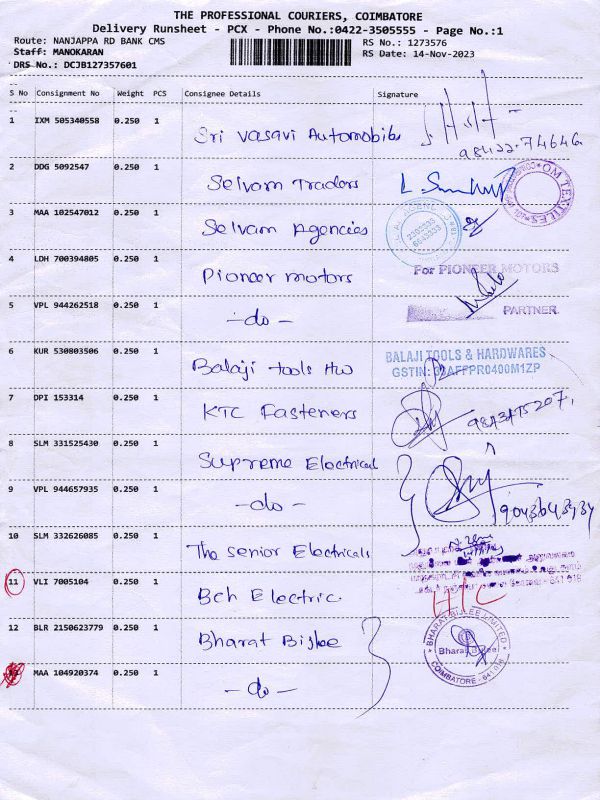 THE PROFESSIONAL COURIERS, COIMBATORE
Delivery Runsheet - PCX - Phone No.:0422-3505555 - Page No.:1
Route: NANJAPPA RD BANK CMS RS No.: 1273576
Staff: MANOKARAN RS Date: 14-Nov-2023
DRS No.: DCJB127357601
S No Consignment No Weight PCS Consignee Details Signature
1 IXM 505340558 0.250 1 Sri Vasavi Automobils
2 DDG 5092547 0.250 1 Selvam Traders
OM TEXTILES
3 MAA 102547012 0.250 1 Selvam Agencies
4 LDH 700394805 0.250 1 Pioneer motors For PIONEER MOTORS
5 VPL 944262518 0.250 1 -do- PARTNER.
6 KUR 530803506 0.250 1 Balaji tools HW BALAJI TOOLS & HARDWARES
GSTIN: 
7 DPI 153314 0.250 1 KTC Fasteners
8 SLM 331525430 0.250 1 Supreme Electrical
9 VPL 944657935 0.250 1 -do-
10 SLM 332626085 0.250 1 The Senior Electricals
11 VLI 7005104 0.250 1 Bch Electric HTC
12 BLR 2150623779 0.250 1 Bharat Bijlee BHARAT BIJLEE LIMITED
Bharat Bijlee
COIMBATORE - 641 018
MAA 104920374 0.250 1 -do-